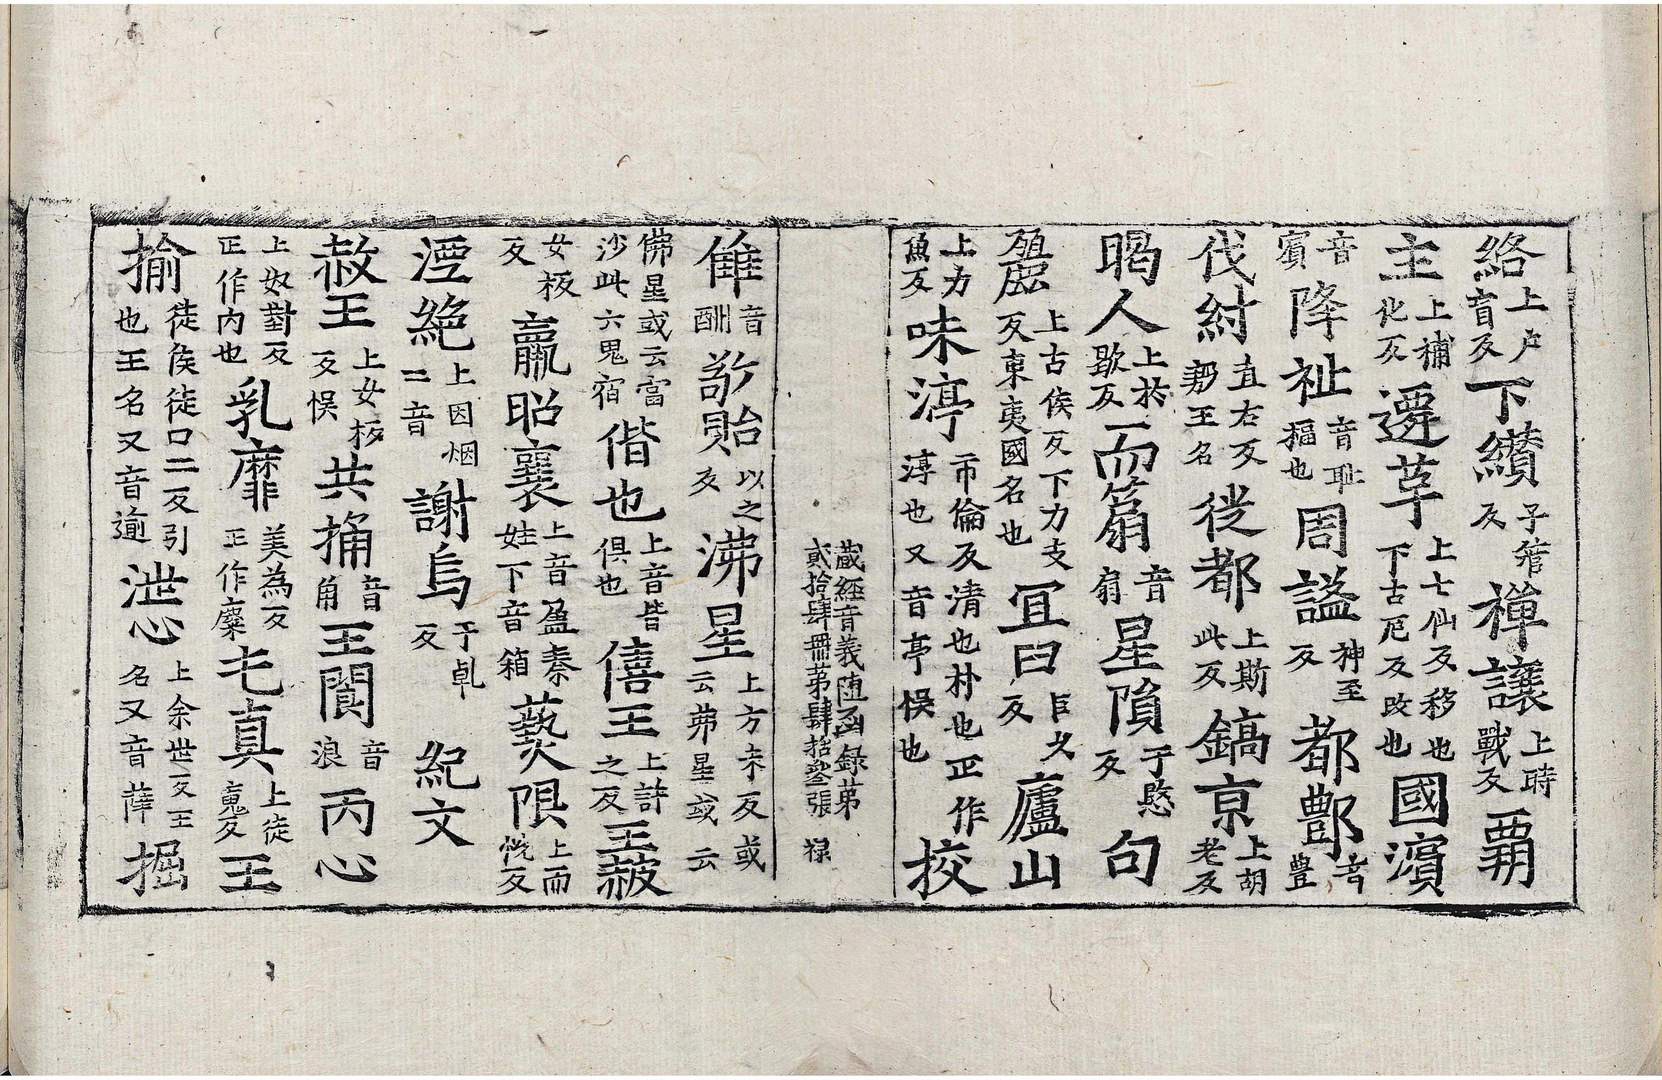 絡上户盲反下纘子管反禪讓上時戰反覇
主上補化反遷革上七仙反移也下古厄反改也國濵
音賔降祉音耻福也周謚神至反都酆音豊
伐紂直右反勢王名從都上斯此反鎬京上胡老反
暍人上於歇反而箭音扇星隕于愍反句
驪上古侯反下力支反東夷國名也冝臼巨久反廬山
上力魚反味渟市倫反清也朴也正作淳也又音亭悮也挍
蔵經音義随函録苐貳拾肆冊苐肆拾叁張 禄
雔音酬詻貽以之反沸星上方未反或云茀星或云
怫星或云富沙此六鬼宿偕也上音皆俱也僖王上許之反王赧
女板反嬴昭襄上音盈秦姓下音箱蓺愪上而悦反
湮絶上因烟二音謝烏于卓反 紀文
赧王上女板反悮共捔音角王閬音浪丙心
上奴對反正作内也乳靡美為反正作麋乇真上徒寬反王
揄徒侯徒口二反引也王名又音逾泄心上余世反王名又音薛掘